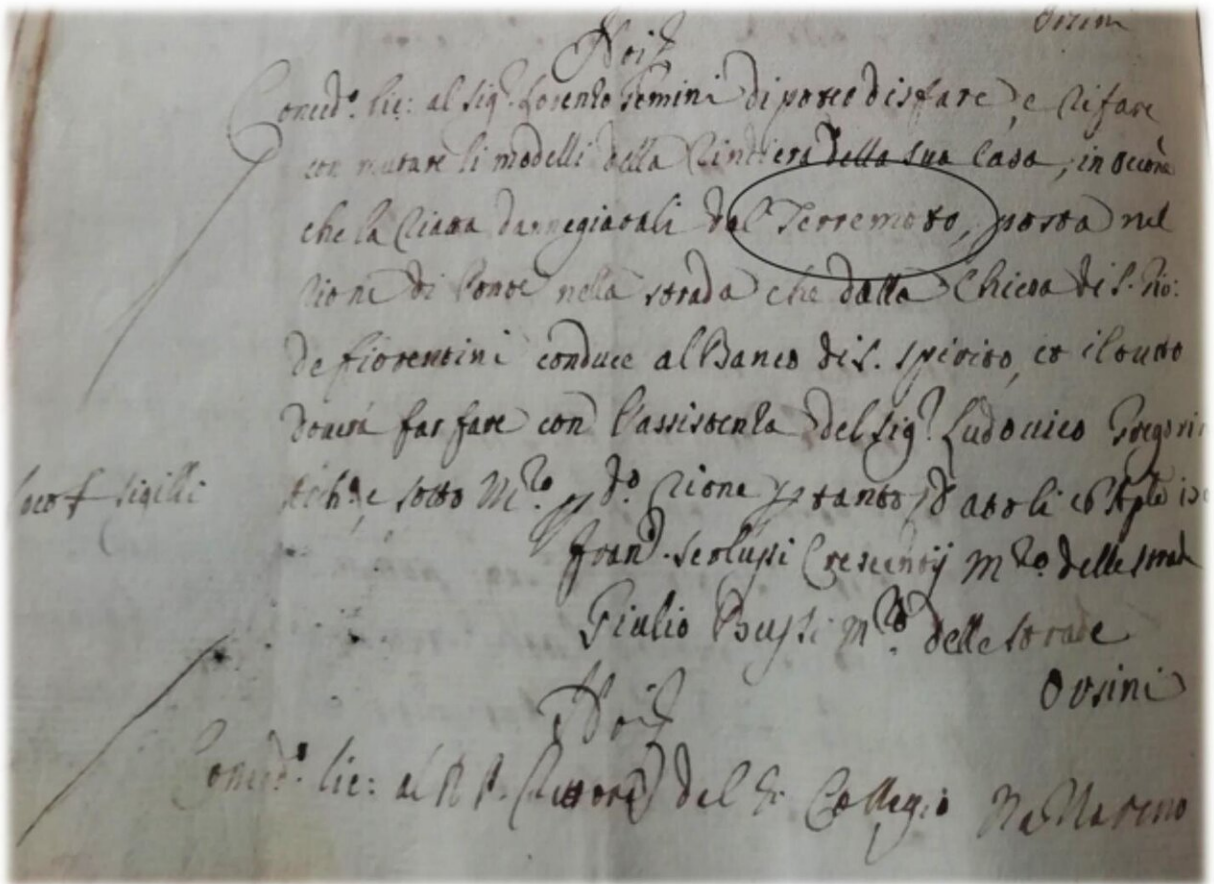 Orsini
Noi
Concid.º lic: al Sig.r Lorenzo Gemini di poter disfare, e rifare
con mutare li modelli della Ringhiera della sua Casa, in
che la danegiatali dal Terremoto, posta nel
rione di Ponte nella strada che dalla Chiesa di S. Gio:
de fiorentini conduce al Banco di S. Spirito, et il tutto
dovrà far fare con l'assistenza del Sig.r Ludovico Gregorini
Arch.e sotto M.ro p d.º rione p tanto
loco + sigilli
Fran.º Serlupi Crescentij M.ro delle strade
Giulio Bussi M.ro delle strade
Orsini
Noi
Concid.º lic: al R. P. Rettore del Collegio Nazareno